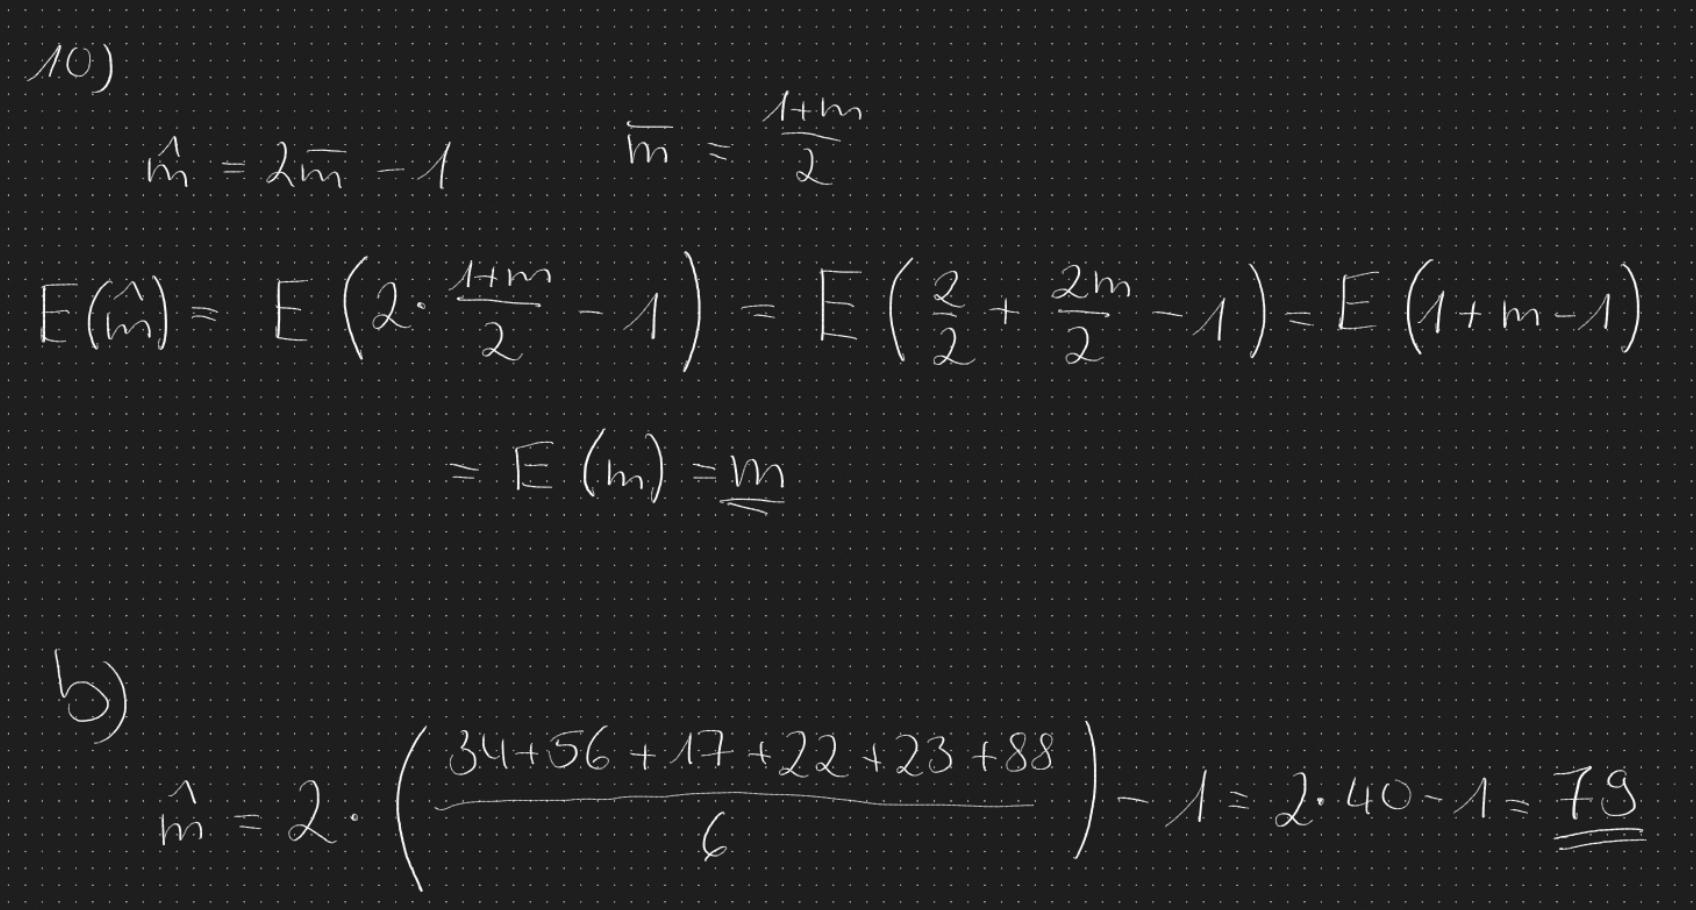 10)
m̂ = 2m̅ - 1    m̅ = (1+m)/2
E(m̂) = E(2 · (1+m)/2 - 1) = E(2/2 + 2m/2 - 1) = E(1+m-1)
= E(m) = m
b)
m̂ = 2 · ((34+56+17+22+23+88)/6) - 1 = 2 · 40 - 1 = 79